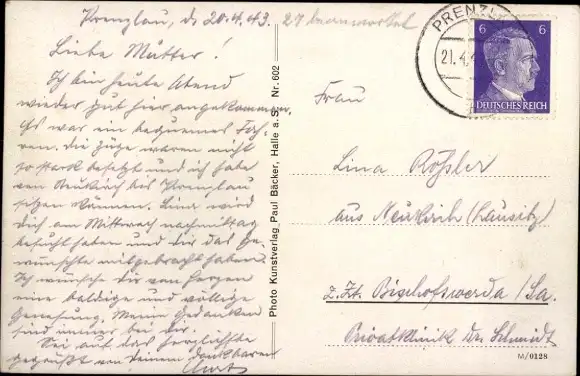 Prenzlau, d. 20.4.43. 27 beantwortet
Liebe Mutter!
Ich bin heute Abend
wieder gut hier angekommen.
Es war ein bequemes Fah-
ren. Die Züge waren nicht
so stark besetzt und ich habe
von Neukirch bis Prenzlau
sitzen können. Lina wird
dich am Mittwoch nachmittag
besucht haben und dir das Ge-
wünschte mitgebracht haben.
Ich wünsche dir von Herzen
eine baldige und völlige
Genesung. Meine Gedanken
sind immer bei dir.
Sei auf das herzlichste
gegrüßt von deinem dankbaren
Photo Kunstverlag Paul Bäcker, Halle a. S. Nr. 602
PRENZL
21.4.
6 6
DEUTSCHES REICH
Frau
Lina Rößler
aus Neukirch (Lausitz)
z. Zt. Bischofswerda /Sa.
Privatklinik Dr. Schmidt
M/0128